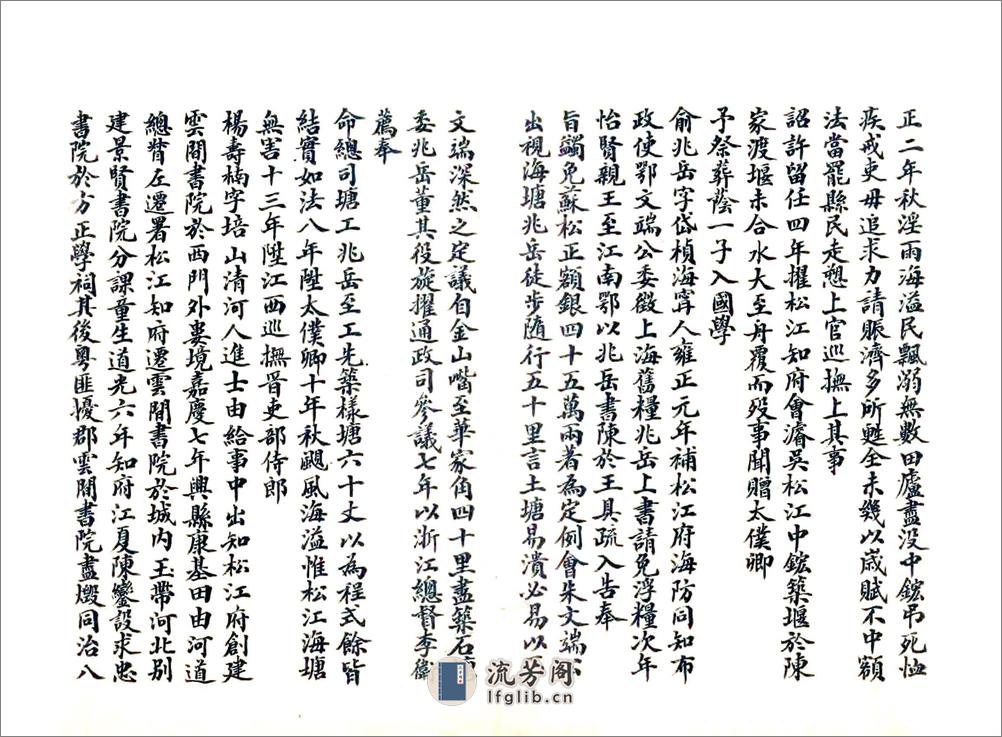 正二年秋淫雨海溢民飄溺無數田廬盡没中鋐吊死恤
疾戒吏毋追求力請賑濟多所甦全未幾以歲賦不中額
法當罷縣民走愬上官巡撫上其事
詔許留任四年擢松江知府會濬吳松江中鋐築堰於陳
家渡堰未合水大至舟覆而殁事聞贈太僕卿
予祭葬蔭一子入國學
俞兆岳字岱楨海寧人雍正元年補松江府海防同知布
政使鄂文端公委徵上海舊糧兆岳上書請免浮糧次年
怡賢親王至江南鄂以兆岳書陳於王具疏入告奉
旨蠲免蘇松正額銀四十五萬兩著為定例會朱文端公
出視海塘兆岳徒步隨行五十里言土塘易潰必易以
文端深然之定議自金山嘴至華家角四十里盡築石
委兆岳董其役旋擢通政司參議七年以浙江總督李衛
薦奉
命總司塘工兆岳至工先築樣塘六十丈以為程式餘皆
結實如法八年陞太僕卿十年秋颶風海溢惟松江海塘
無害十三年陞江西巡撫晉吏部侍郎
楊壽楠字培山清河人進士由給事中出知松江府創建
雲間書院於西門外婁境嘉慶七年興縣康基田由河道
總督左遷署松江知府遷雲間書院於城内玉帶河北别
建景賢書院分課童生道光六年知府江夏陳鑾設求忠
書院於方正學祠其後粤匪擾郡雲間書院盡燬同治八
流芳阁
lfglib.cn